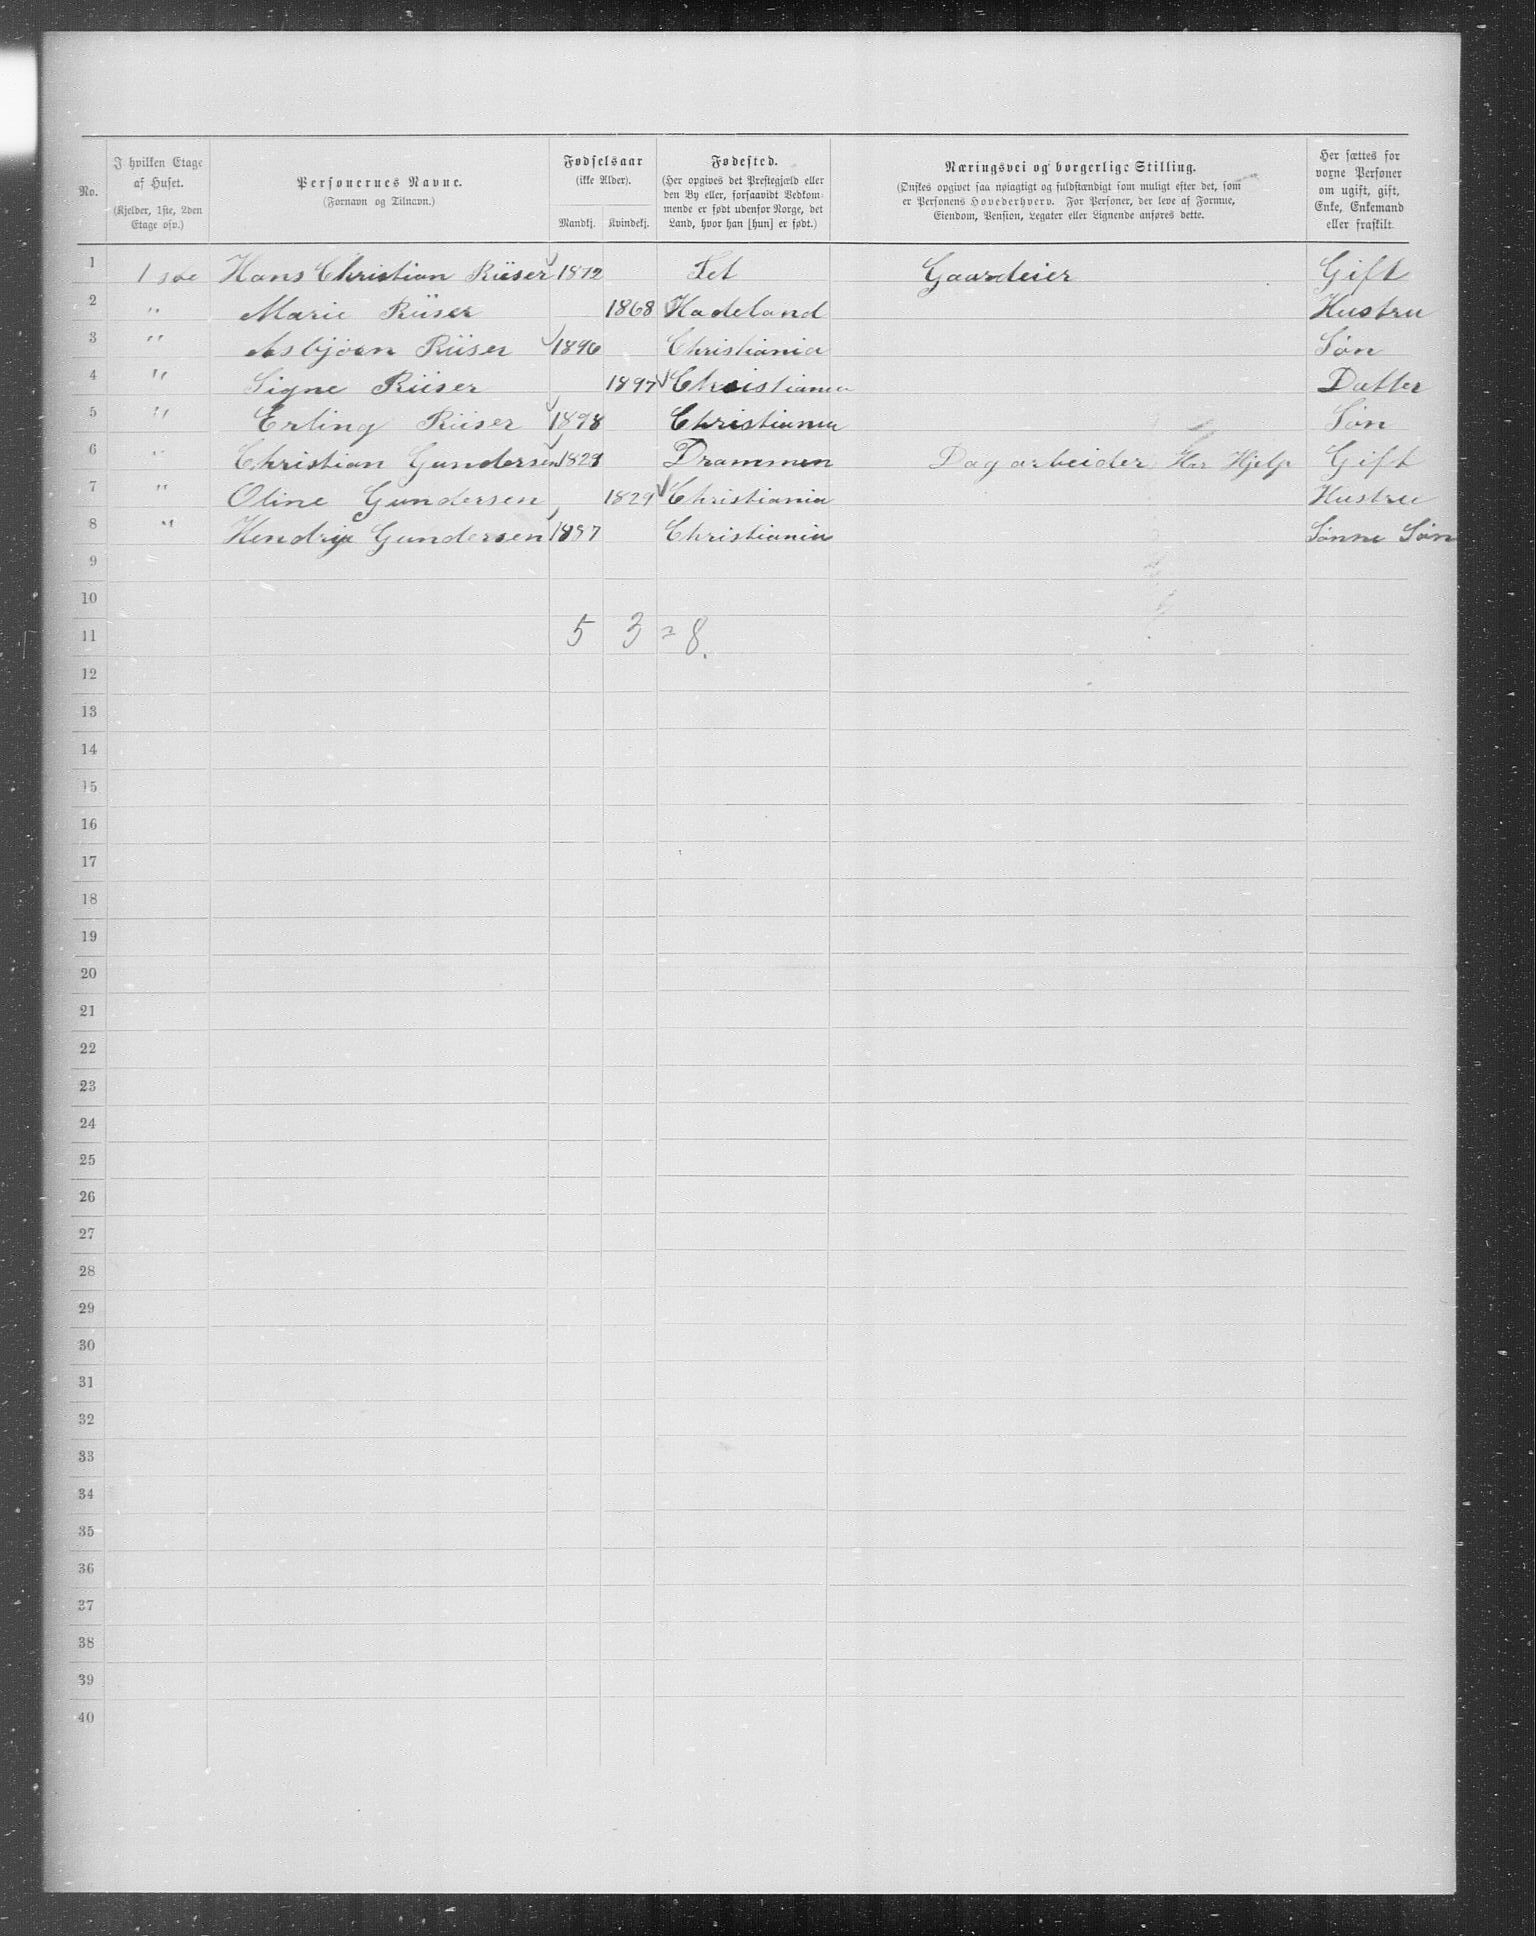 No.
I hvilken Etage af Huset. (Kjelder, 1ste, 2den Etage osv.)
Personernes Navne. (Fornavn og Tilnavn.)
Fødselsaar (ikke Alder).
Mandkj. Kvindekj.
Fødested. (Her opgives det Præstegjæld eller den By eller, forsaavidt Vedkommende er født udenfor Norge, det Land, hvor han [hun] er født.)
Næringsvei og borgerlige Stilling. (Ønskes opgivet saa nøiagtigt og fuldstændigt som muligt efter det, som er Personens Hovederhverv. For Personer, der leve af Formue, Eiendom, Pension, Legater eller Lignende anføres dette.)
Her sættes for voxne Personer om ugift, gift, Enke, Enkemand eller fraskilt.
1 1 ste Hans Christian Riiser 1872 Fet Gaardeier Gift
2 " Marie Riiser 1868 Hadeland Hustru
3 " Asbjørn Riiser 1896 Christiania Søn
4 " Signe Riiser 1897 Christiania Datter
5 " Erling Riiser 1898 Christiania Søn
6 " Christian Gundersen Drammen Dagarbeider Har Hjelp Gift
7 " Oline Gundersen 1829 Christiania Hustru
8 " Gundersen 1887 Christiania Sønne Søn
9
10
11 5 3 = 8.
12
13
14
15
16
17
18
19
20
21
22
23
24
25
26
27
28
29
30
31
32
33
34
35
36
37
38
39
40